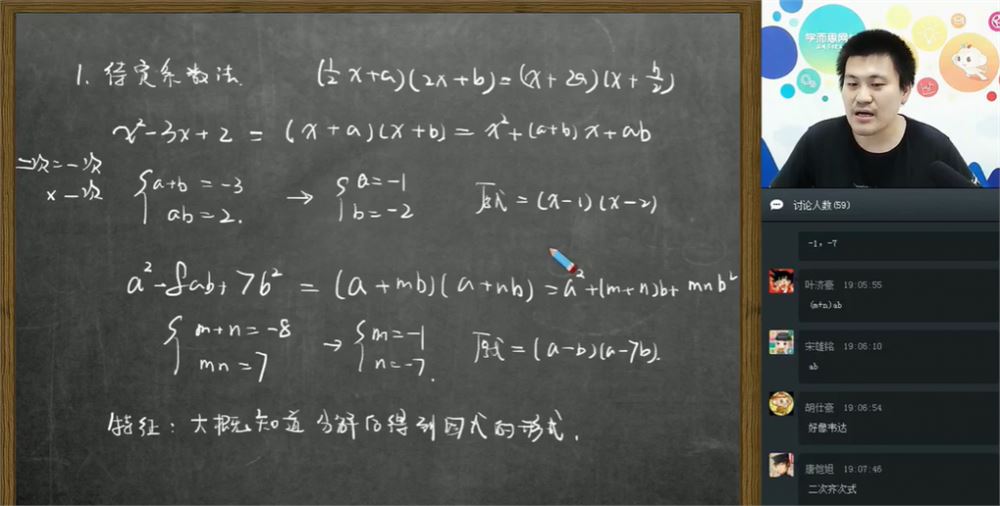 1. 待定系数法 (½x+a)(2x+b)=(x+2a)(x+b/2)
x²-3x+2 = (x+a)(x+b) = x²+(a+b)x+ab
二次=一次
×一次
{a+b=-3
ab=2.
→ {a=-1
b=-2
原式=(x-1)(x-2)
a²-8ab+7b² = (a+mb)(a+nb)=a²+(m+n)b+mnb²
{m+n=-8
mn=7
→ {m=-1
n=-7.
原式=(a-b)(a-7b).
特征：大概知道分解后得到因式的形式.
学而思网
讨论人数(59)
-1，-7
叶济豪 19:05:55
(m+n)ab
宋雄铭 19:06:10
ab
胡仕豪 19:06:54
好像韦达
唐恺姐 19:07:46
二次齐次式